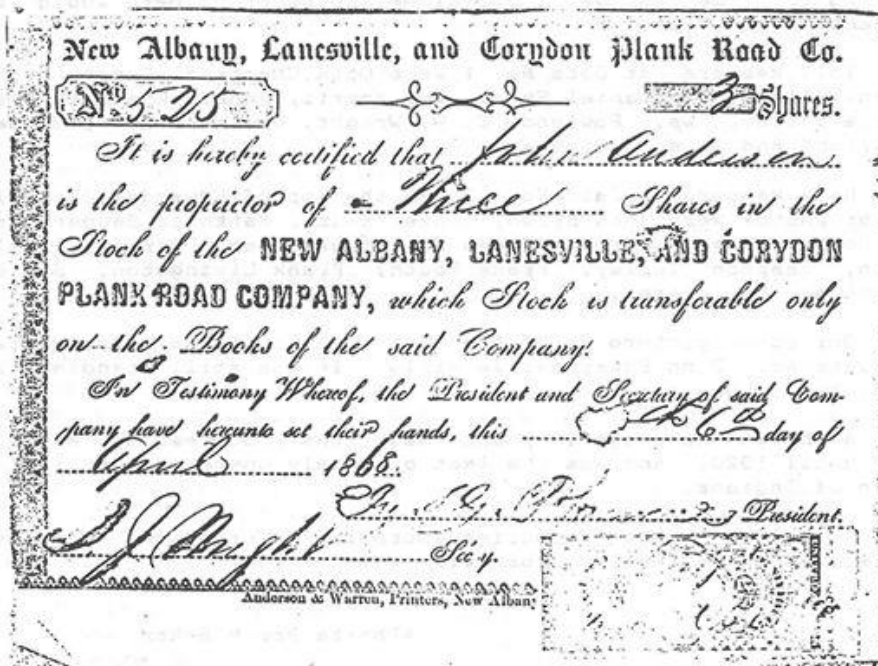 New Albany, Lanesville, and Corydon Plank Road Co.
No 525 3 Shares.
It is hereby certified that John Anderson
is the proprietor of Three Shares in the
Stock of the NEW ALBANY, LANESVILLE, AND CORYDON
PLANK ROAD COMPANY, which Stock is transferable only
on the Books of the said Company.
In Testimony Whereof, the President and Secretary of said Com-
pany have hereunto set their hands, this 6th day of
April 1868.
President.
D J Wright Sec'y.
Anderson & Warren, Printers, New Albany